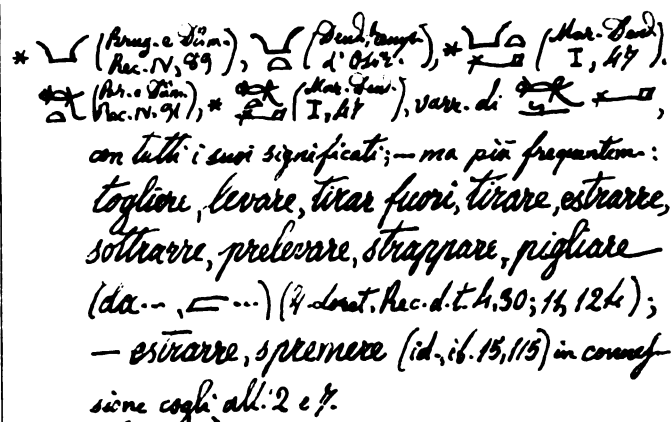 * 𓄋 (Brug. e Düm. Rec. IV, 89), (Dend., temp. d'Osir.), * (Mar. Dend. I, 47).
(Br. e Düm. Rec. IV. 91), * (Mar. Den. I, 47), varr. di ,
con tutti i suoi significati; — ma più frequentem.:
togliere, levare, tirar fuori, tirare, estrarre,
sottrarre, prelevare, strappare, pigliare
(da... , ...) ( Loret, Rec. d. t. 4, 30; 16, 124);
— estrarre, spremere (id., ib. 15, 115) in connes-
sione cogli all.i 2 e 7.